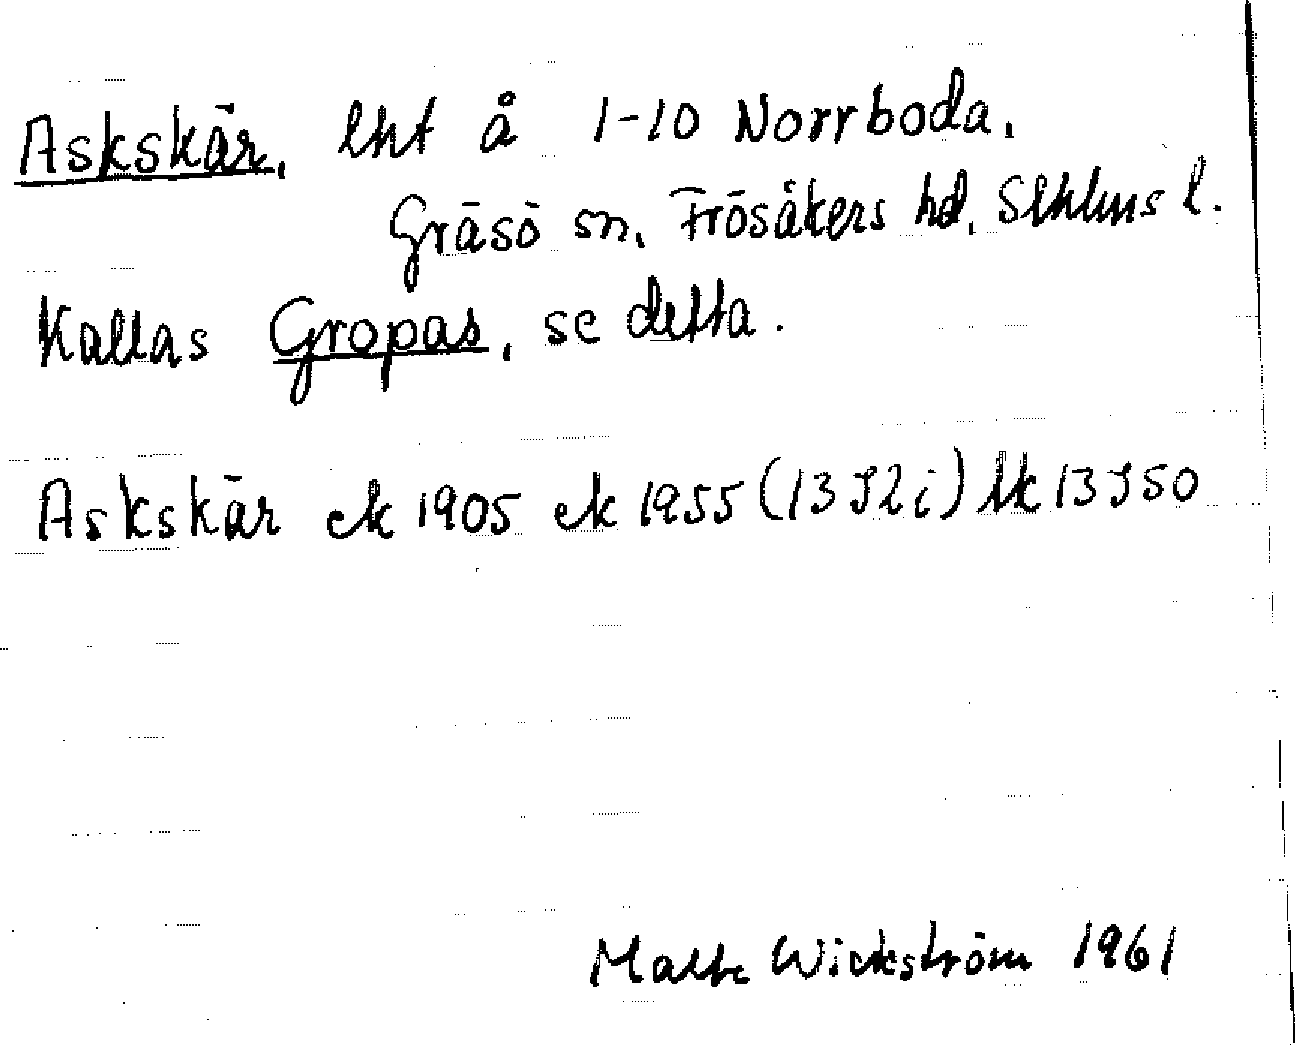 Askskär, lht å 1-10 Norrboda.
Gräsö sn. Frösåkers hd. Sthlms l.
Kallas Gropas, se detta.
Askskär ek 1905 ek 1955 (13 I 2 i) lk 13 I 50
Malte Wickström 1961